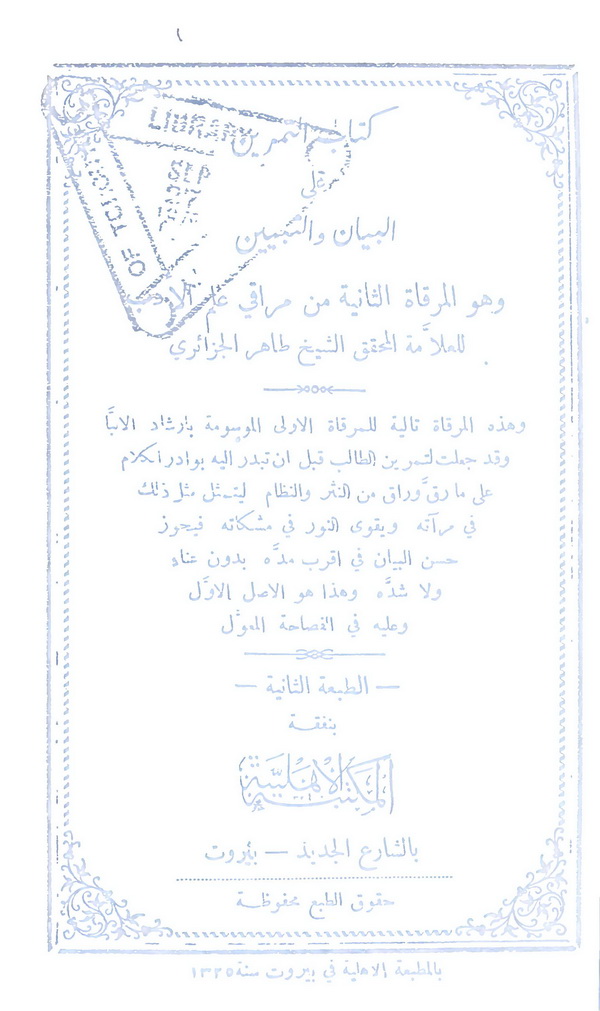 ١
كتاب التمرين
على
البيان والتبيين
وهو المرقاة الثانية من مراقي علم الأدب
للعلاَّمة المحقق الشيخ طاهر الجزائري
وهذه المرقاة تالية للمرقاة الاولى الموسومة بارشاد الالبَّا
وقد جعلت لتمرين الطالب قبل ان تبدر اليه بوادر الكلام
على ما رقَّ وراق من النثر والنظام ليتمثل مثل ذلك
في مرآته ويقوى النور في مشكاته فيحوز
حسن البيان في اقرب مدَّه بدون عناء
ولا شدَّه وهذا هو الاصل الاوَّل
وعليه في الفصاحة المعوَّل
— الطبعة الثانية —
بنفقة
المكتبة الاهلية
بالشارع الجديد — بيروت
حقوق الطبع محفوظة
بالمطبعة الاهلية في بيروت سنة ١٣٢٥
OF TORONTO